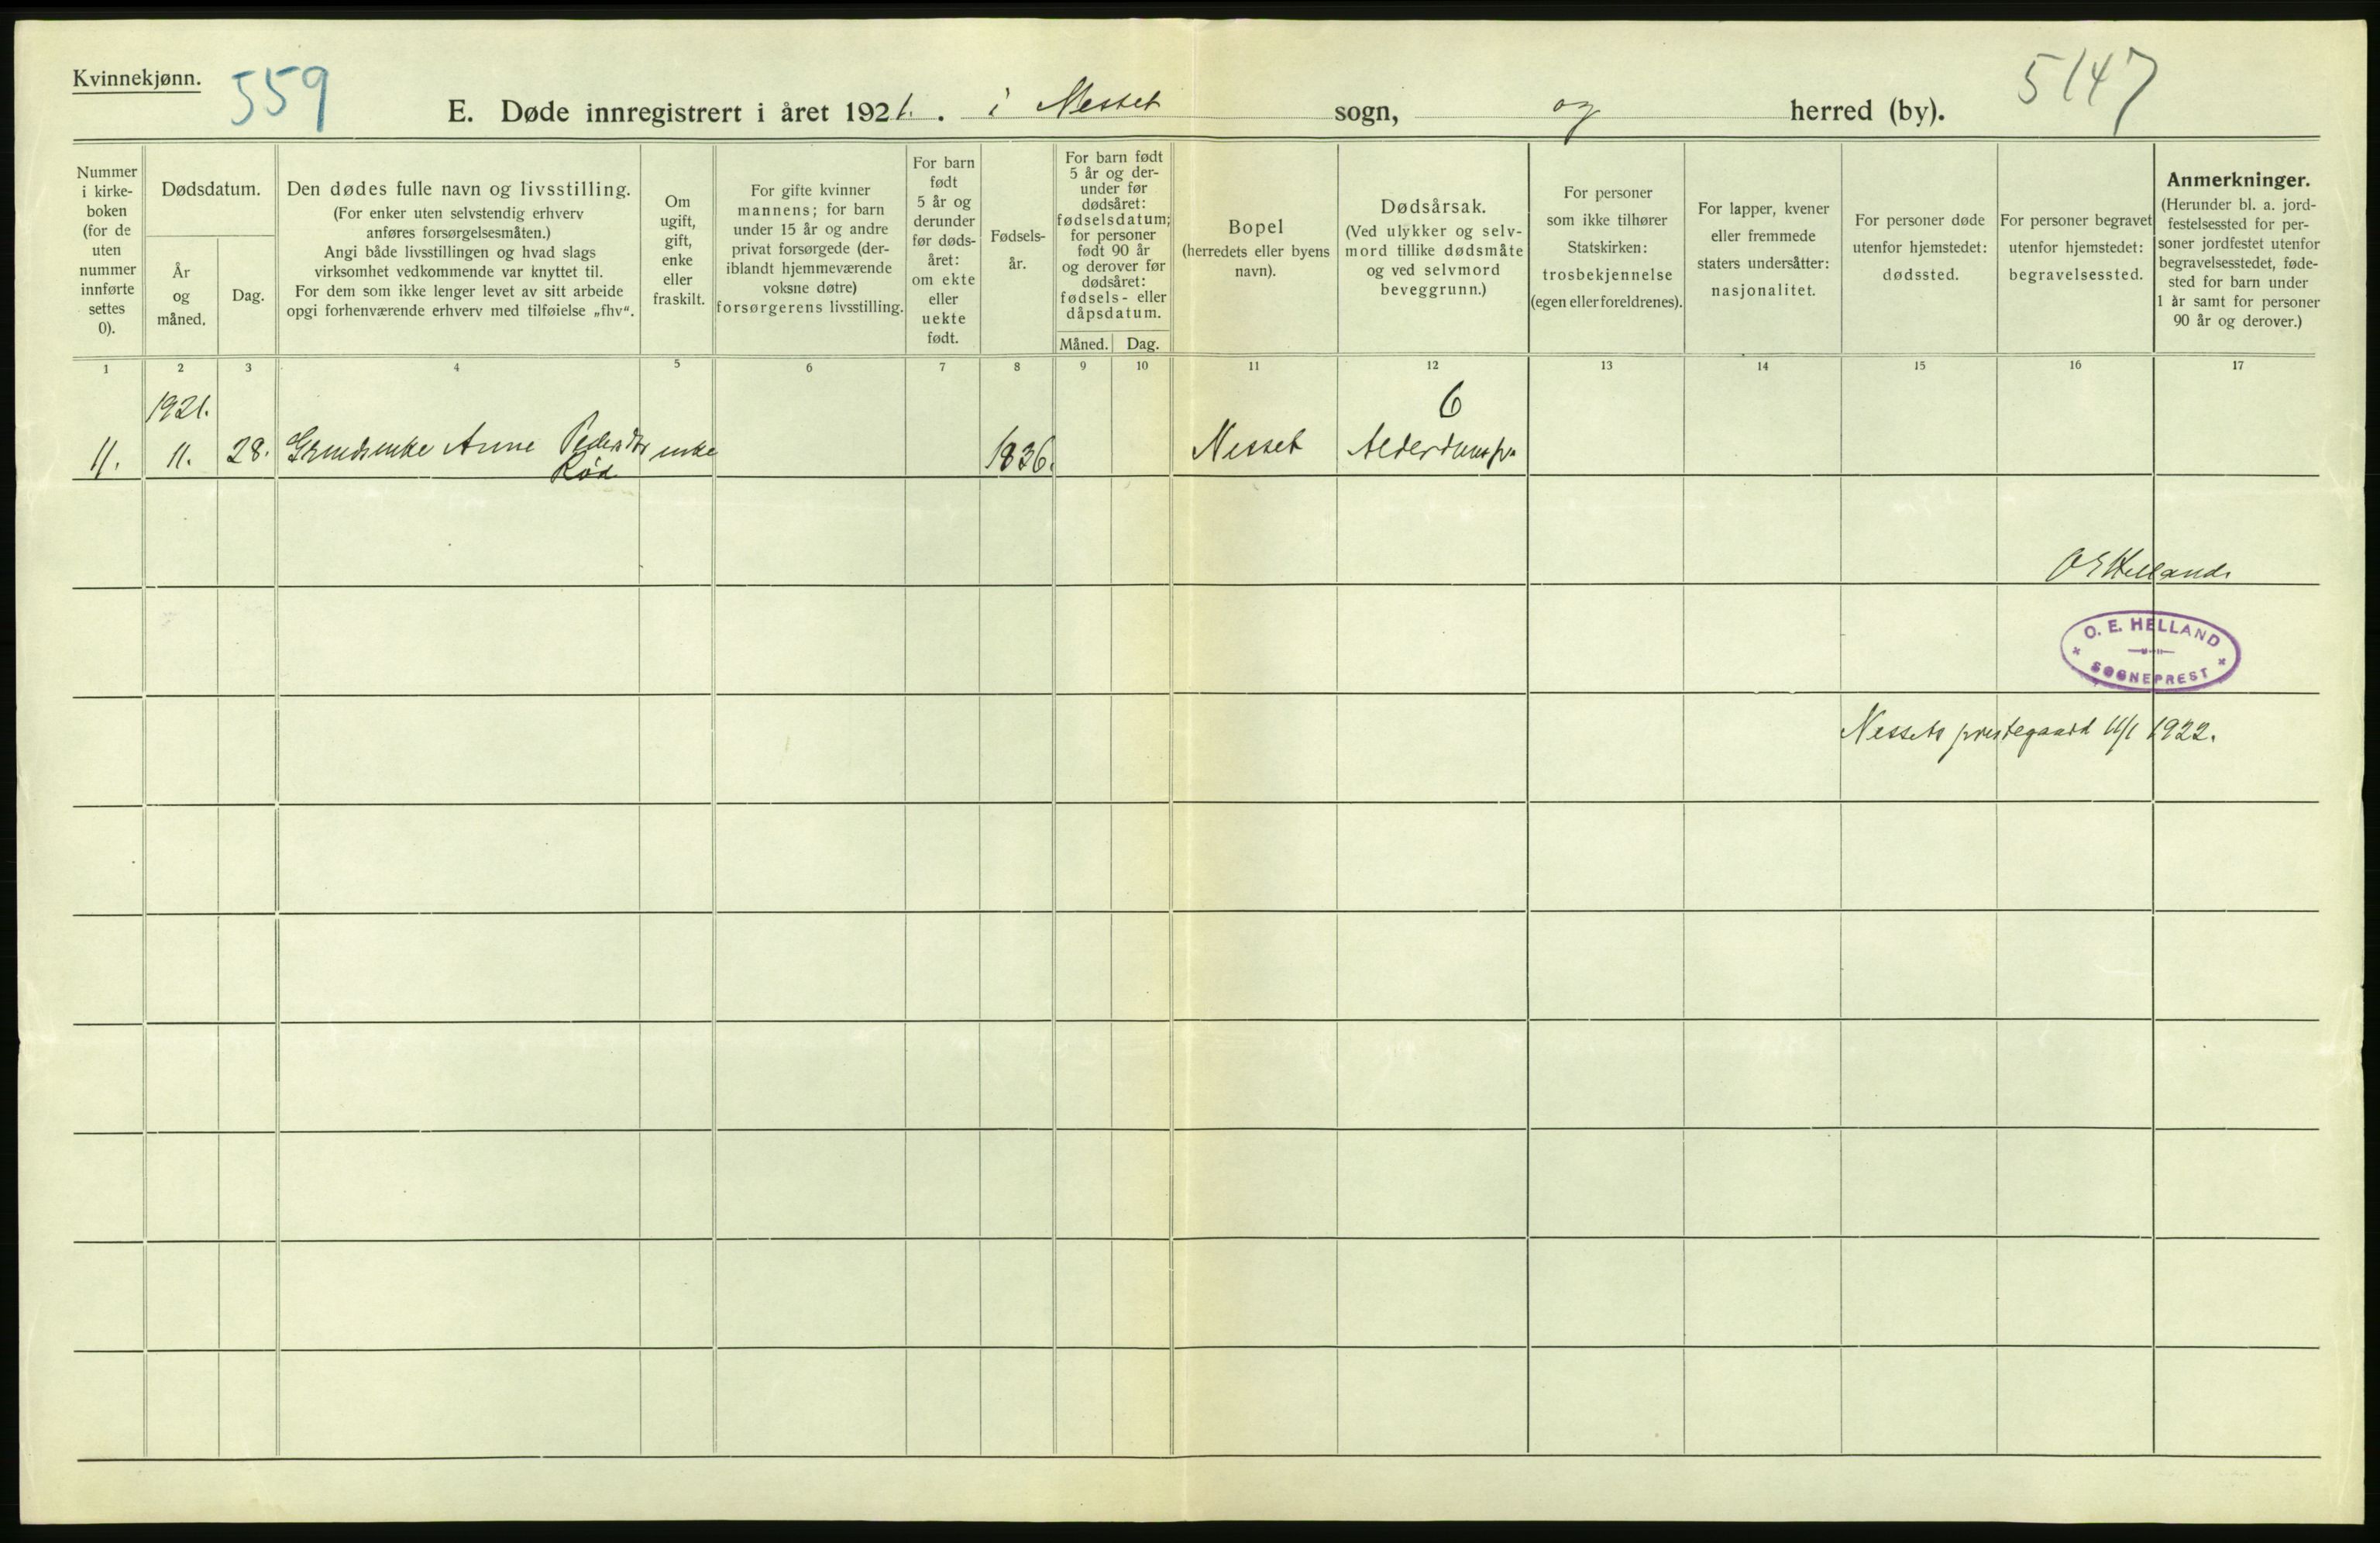 Kvinnekjønn.
559
5147
E. Døde innregistrert i året 1921. . i Nesset sogn, og herred (by).
Nummer
i kirke-
boken
(for de
uten
nummer
innførte
settes
0).
Dødsdatum.
År
og
måned.
Dag.
Den dødes fulle navn og livsstilling.
(For enker uten selvstendig erhverv
anføres forsørgelsesmåten.)
Angi både livsstillingen og hvad slags
virksomhet vedkommende var knyttet til.
For dem som ikke lenger levet av sitt arbeide
opgi forhenværende erhverv med tilføielse „fhv“.
Om
ugift,
gift,
enke
eller
fraskilt.
For gifte kvinner
mannens; for barn
under 15 år og andre
privat forsørgede (der-
iblandt hjemmeværende
voksne døtre)
forsørgerens livsstilling.
For barn
født
5 år og
derunder
før døds-
året:
om ekte
eller
uekte
født.
Fødsels-
år.
For barn født
5 år og der-
under før
dødsåret:
fødselsdatum;
for personer
født 90 år
og derover før
dødsåret:
fødsels- eller
dåpsdatum.
Måned.
Dag.
Bopel
(herredets eller byens
navn).
Dødsårsak.
(Ved ulykker og selv-
mord tillike dødsmåte
og ved selvmord
beveggrunn.)
For personer
som ikke tilhører
Statskirken:
trosbekjennelse
(egen eller foreldrenes).
For lapper, kvener
eller fremmede
staters undersåtter:
nasjonalitet.
For personer døde
utenfor hjemstedet:
dødssted.
For personer begravet
utenfor hjemstedet:
begravelsessted.
Anmerkninger.
(Herunder bl. a. jord-
festelsessted for per-
soner jordfestet utenfor
begravelsesstedet, føde-
sted for barn under
1 år samt for personer
90 år og derover.)
1 2 3 4 5 6 7 8 9 10 11 12 13 14 15 16 17
1921. 6
11. 11. 28. Anne Pedersdtr enke 1836. Nesset
Rød
O E Helland
O. E. HELLAND
SOGNEPREST
Nessets prestegaard 11/1 1922.